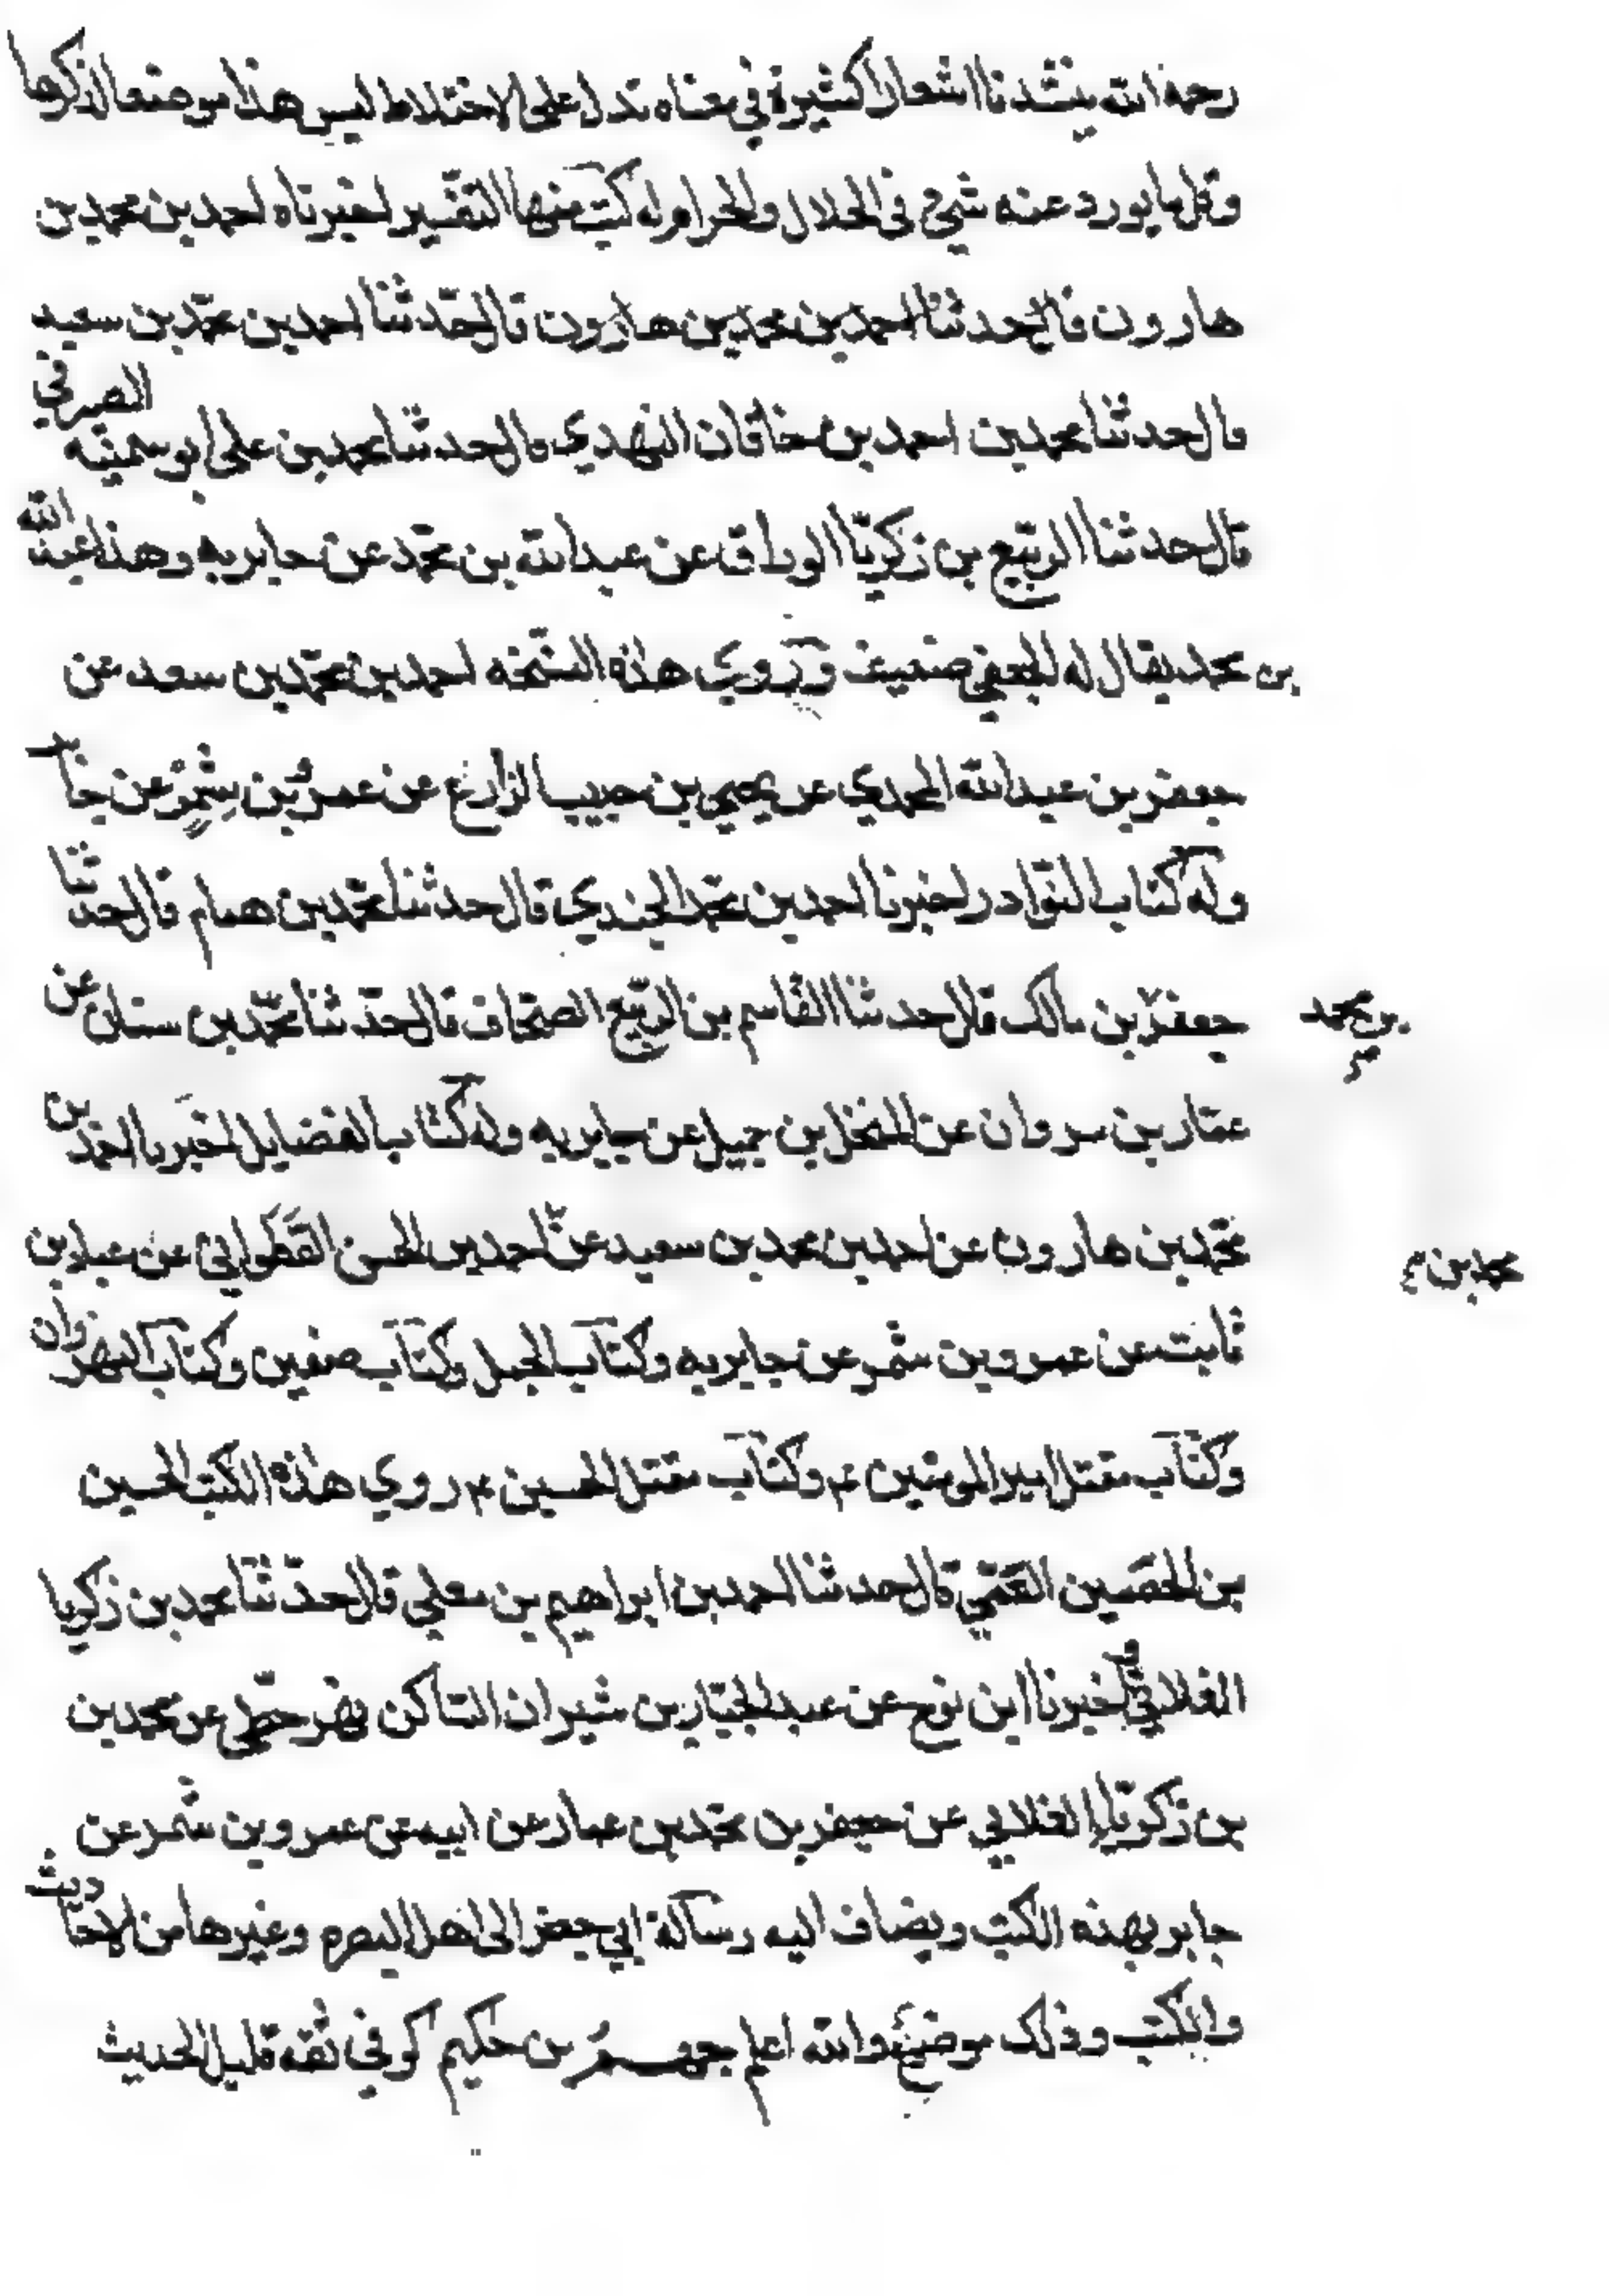 رحمه الله ينشدنا اشعارا كثيرة في معناه تدل على الاختلاط ليس هذا موضعا لذكرها
وقل ما يورد عنه شيئ في الحلال والحرام له كتب منها التفسير اخبرناه احمد بن محمد بن
هارون قال حدثنا احمد بن محمد بن هارون قال حدّثنا احمد بن محمّد بن سعيد
قال حدثنا محمد بن احمد بن خاقان النهدي قال حدثنا محمد بن علي ابو سمينه الصيرفي
قال حدثنا الربيع بن زكريّا الوراق عن عبد الله بن محمّد عن جابر به وهذا عبد الله
بن محمد يقال له الجعفي ضعيف وروي هذه النسخه احمد بن محمّد بن سعد عن
جعفر بن عبد الله المحمدي عن يحيى بن حبيب الزارع عن عمرو بن شِمْرٍ عن جابر
وله كتاب النّوادر اخبرنا احمد بن محمّد الجندي قال حدثنا محمّد بن همام قال حدثنا
جعفر بن مالك قال حدثنا القاسم بن الرّبيع الصحّاف قال حدّثنا محمّد بن سنان عن
بن محمد
عمّار بن مروان عن المنخل بن جميل عن جابر به وله كتاب الفضايل اخبرنا احمد بن
محمّد بن هارون عن احمد بن محمد بن سعيد عن احمد بن الحسن القَطَواني عن عباد بن
محمد بن
ثابت عن عمرو بن شمر عن جابر به وكتاب الجمل وكتاب صفين وكتاب النهروان
وكتاب مقتل امير المومنين ع وكتاب مقتل الحسين ع روي هذه الكتب الحسين
بن الحصين القمّي قال حدثنا احمد بن ابراهيم بن معلي قال حدّثنا محمد بن زكريا
الغلابي واخبرنا ابن نوح عن عبد الجبّار بن شيران الساكن نهر خطّى عن محمد بن
بن زكريّا الغلابي عن جعفر بن محمّد بن عمار عن ابيه عن عمرو بن شمر عن
جابر بهذه الكتب ويضاف اليه رسالة ابي جعفر الى اهل البصره وغيرها من الاحاديث
والكتب وذلك موضوع والله اعلم جهم بن حكيم كوفي ثقه قليل الحديث